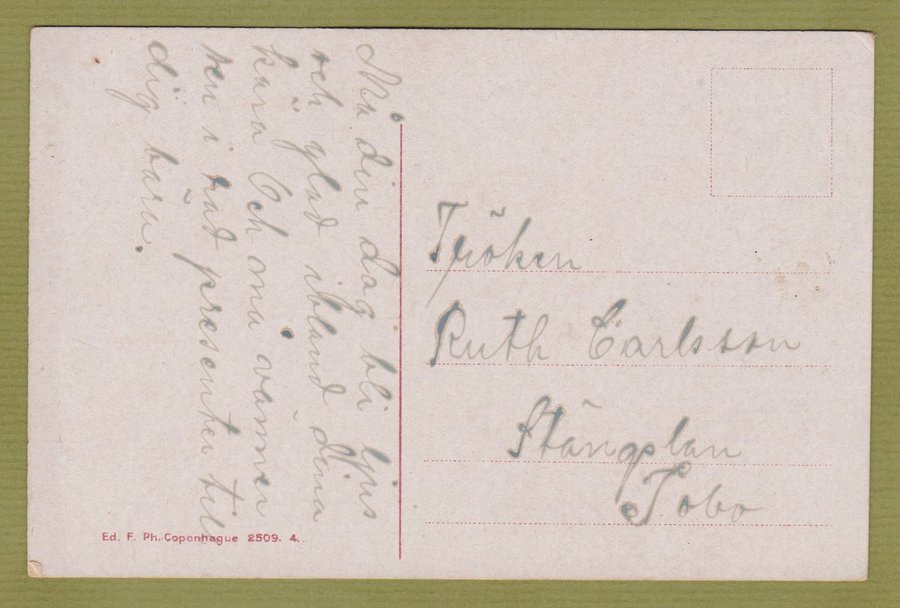 Må din dag bli ljus
och glad ibland dina
kära Och må vänner
ken i rad presenter till
dig bära.
Fröken
Ruth Carlsson
Stängslan
Tobo
Ed. F. Ph. Copenhague 2509. 4.